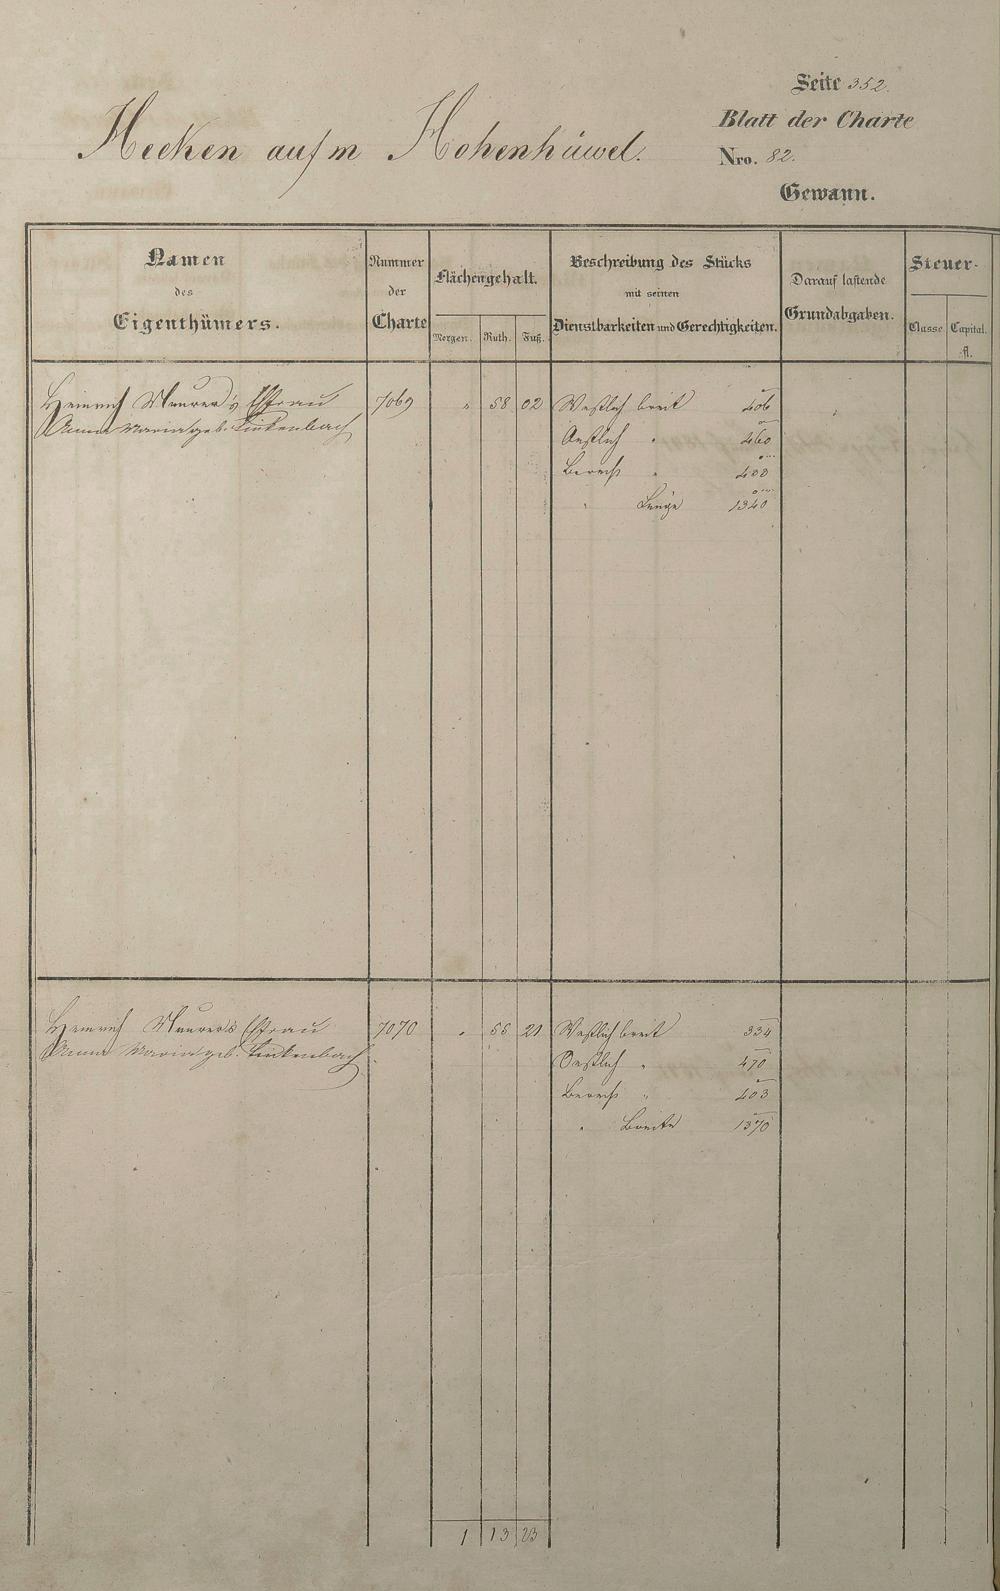 Seite 352.
Blatt der Charte
Hecken auf'm Hohenhüwel. Nro. 82.
Gewann.
Namen des Eigenthümers. Nummer der Charte Flächengehalt. Morgen. Ruth. Fuß. Beschreibung des Stücks mit seinen Dienstbarkeiten und Gerechtigkeiten. Darauf lastende Grundabgaben. Steuer- Classe Capital. fl.
Heinrich Maurer's Ehfrau 7069 " 58 02 Westlich breit 406
Anna Maria geb. Linkenbach
Oestlich " 460
Berech " 433
" Länge 1340
Heinrich Maurer's Ehfrau 7070 " 55 21 Westlich breit 334
Anna Maria geb. Linkenbach
Oestlich " 470
Berech " 403
" Breite 1370
1 13 23